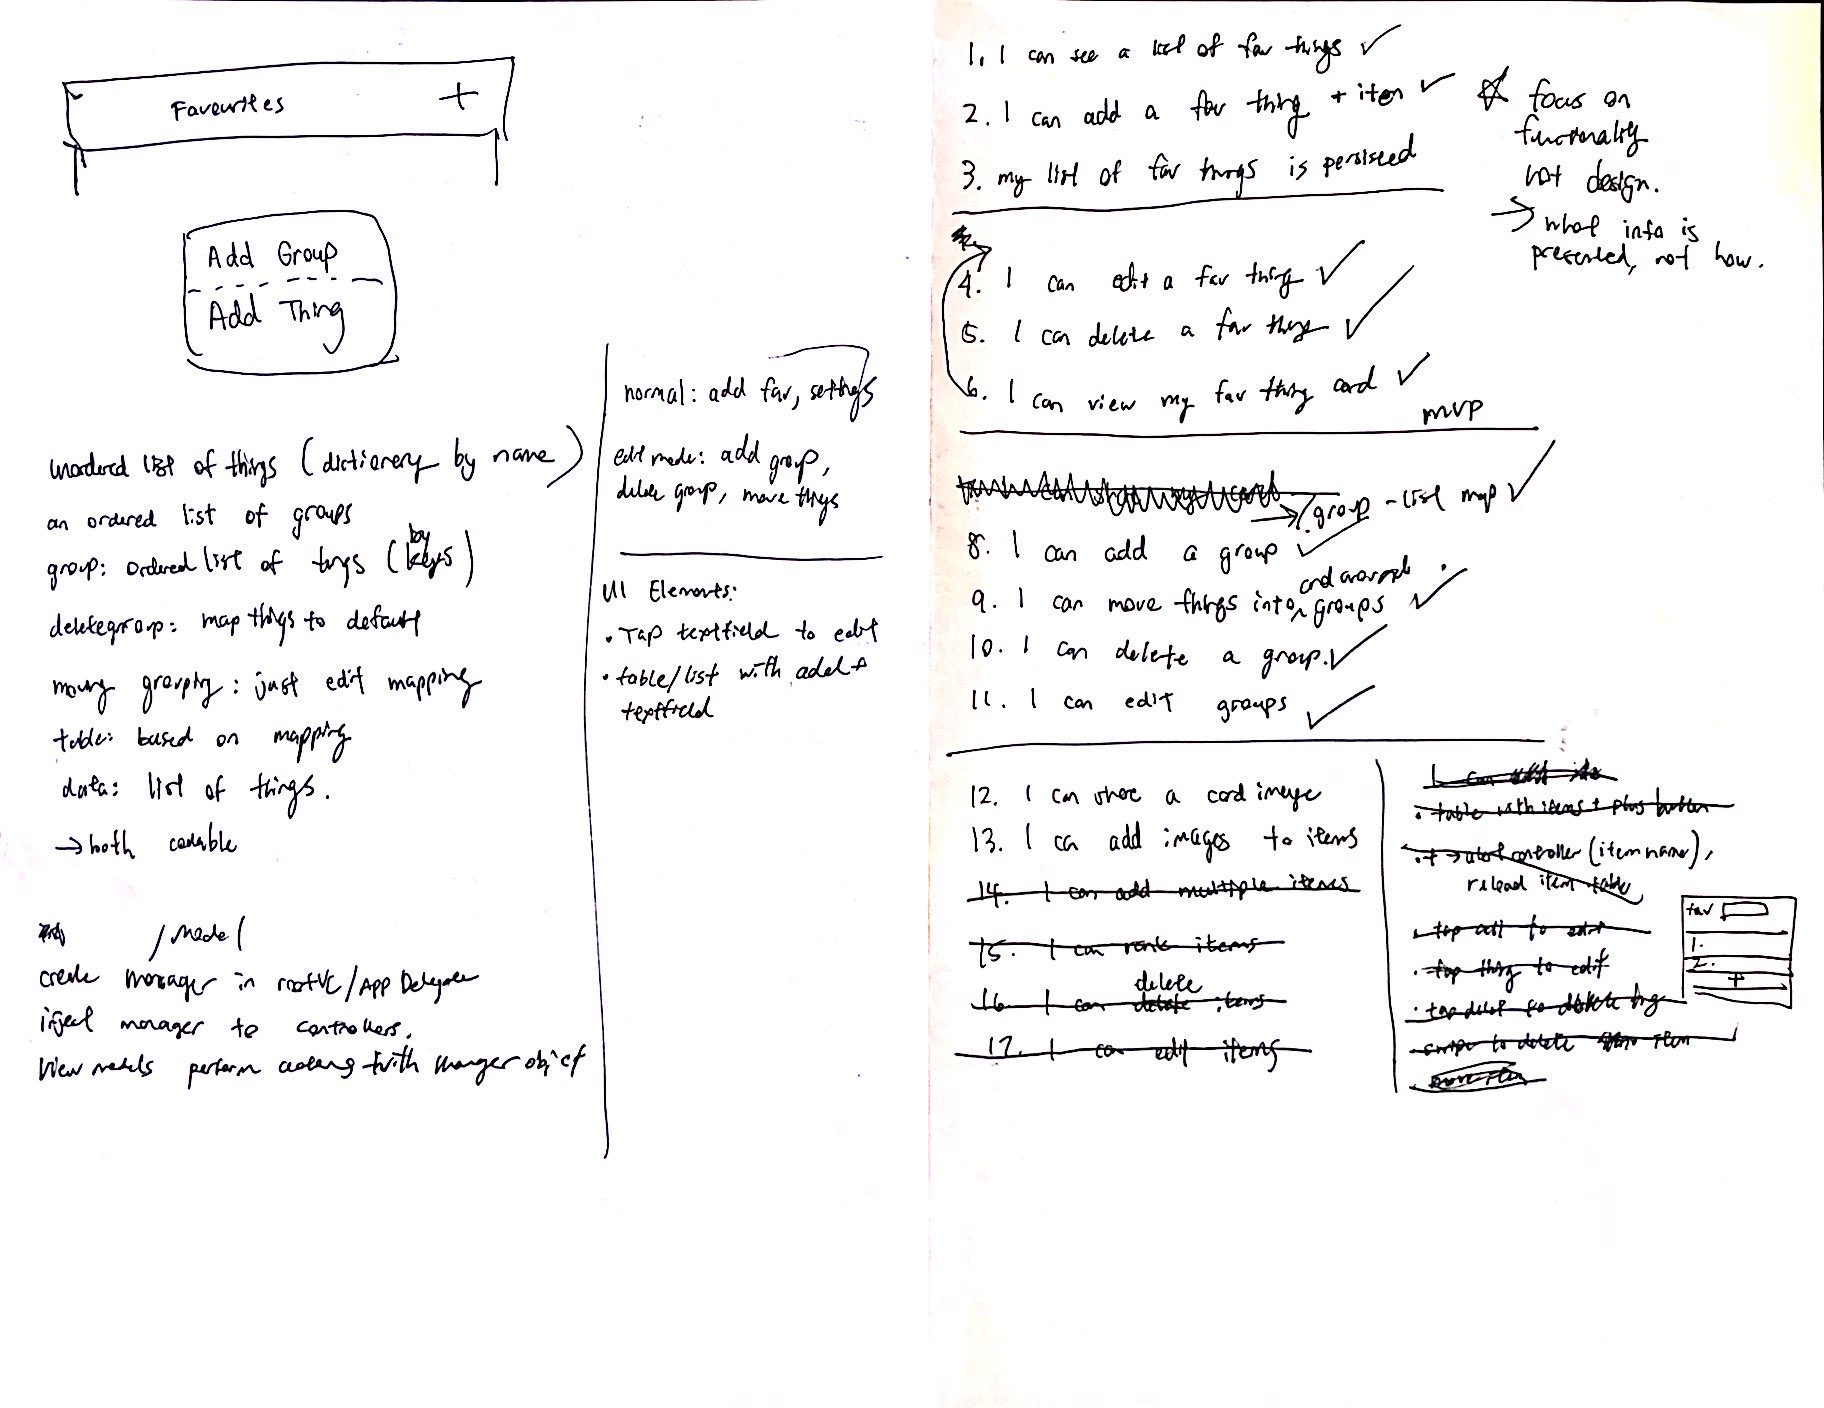 Favourites +
Add Group
Add Thing
unordered list of things (dictionary by name)
an ordered list of groups
group: ordered list of things (by keys)
delete group: map things to default
moving grouping: just edit mapping
table: based on mapping
data: list of things.
→ both codable
/Model
create manager in rootVC/App Delegate
inject manager to controllers.
View models perform with manager object
normal: add fav, settings
edit mode: add group,
delete group, move things
UI Elements:
• Tap textfield to edit
• table/list with add +
textfield
1. I can see a list of fav things ✓
2. I can add a fav thing + item ✓
3. my list of fav things is persisted
☆ focus on
functionality
not design.
→ what info is
presented, not how.
4. I can edit a fav thing ✓
5. I can delete a fav thing ✓
6. I can view my fav thing card ✓
MVP
→ 7. group - list map ✓
8. I can add a group ✓
9. I can move things into and around groups ✓
10. I can delete a group. ✓
11. I can edit groups ✓
12. I can share a card image
13. I can add images to items
14. I can add multiple items
15. I can rank items
16. I can delete items
17. I can edit items
• table with items + plus button
• + → alert controller (item name),
reload item table
• tap cell to edit
• tap thing to edit
• swipe to delete item
fav
1.
2.
+